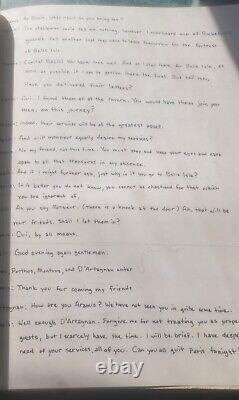 Ah Bazin, what news do you bring me?
The nobleman would tell me nothing, however I overheard one of Rochefort's
guards tell another that they were to leave tomorrow for the fortress
of Belle Isle.
Capital Bazin! You have done well. And so I shall leave for Belle Isle, as
soon as possible, if I am to arrive there the first. But tell me,
Have you delivered their letters?
Oui. I found them all at the tavern. You would have them join you
then, on this journey?
Indeed, their services will be of the greatest asset.
And will monsieur equally desire my services?
No my friend, not this time. You must stay and keep your eyes and ears
open to all that transpires in my absence.
And if I might further ask, just why is it you go to Belle Isle?
It is better you do not know, you cannot be chastised for that which
you are ignorant of.
As you say Monsieur. (There is a knock at the door) Ah, that will be
your friends. Shall I let them in?
Oui, by all means.
Good evening again gentlemen.
Porthos, Monttros, and D'Artagnan enter
Thank you for coming my friends
tagnan: How are you Aramis? We have not seen you in quite some time.
Well enough D'Artagnan. Forgive me for not treating you as prope
guests, but I scarcely have the time. I will be brief. I have despe
need of your services, all of you. Can you all quit Paris tonight
ebay